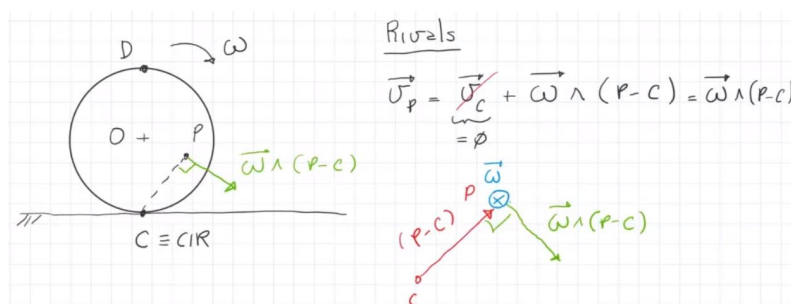 D ω
O + P
ω⃗ ∧ (P-C)
C ≡ CIR
Rivals
v⃗_P = v⃗_C + ω⃗ ∧ (P-C) = ω⃗ ∧ (P-C)
= ∅
ω⃗
P
(P-C)
ω⃗ ∧ (P-C)
C